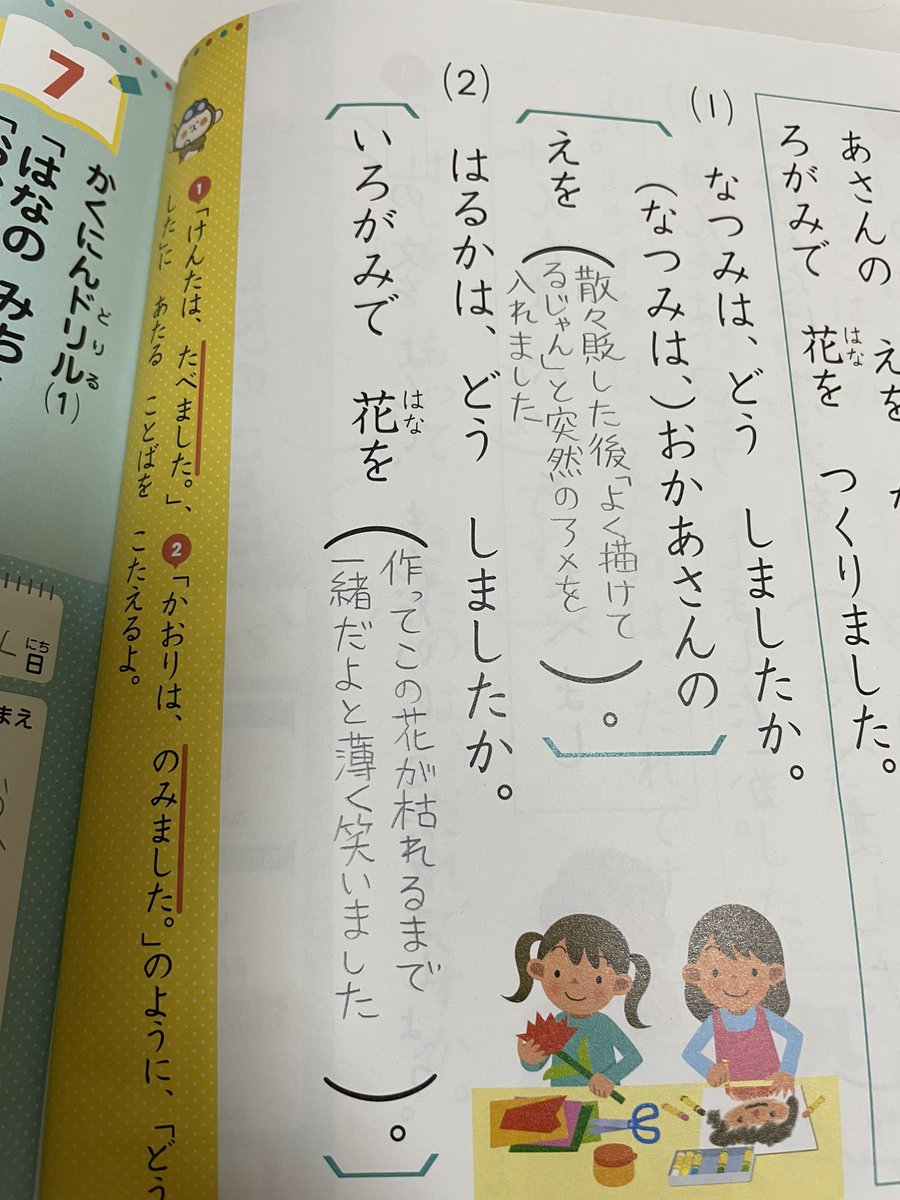 あさんの　えを
ろがみで　花を　つくりました。
はな
(1)　なつみは、どう　しましたか。
(なつみは、)おかあさんの
えを(
散々貶した後「よく描けて
るじゃん」と突然のアメを
入れました
)。
(2)　はるかは、どう　しましたか。
いろがみで　花を(
はな
作ってこの花が枯れるまで
一緒だよと薄く笑いました
)。
❶「けんたは、たべました。」、❷「かおりは、のみました。」のように、「どう
した」に　あたる　ことばを　こたえるよ。
7
かくにんドリル(1)
どりる
「はなの　みち
日
にち
まえ